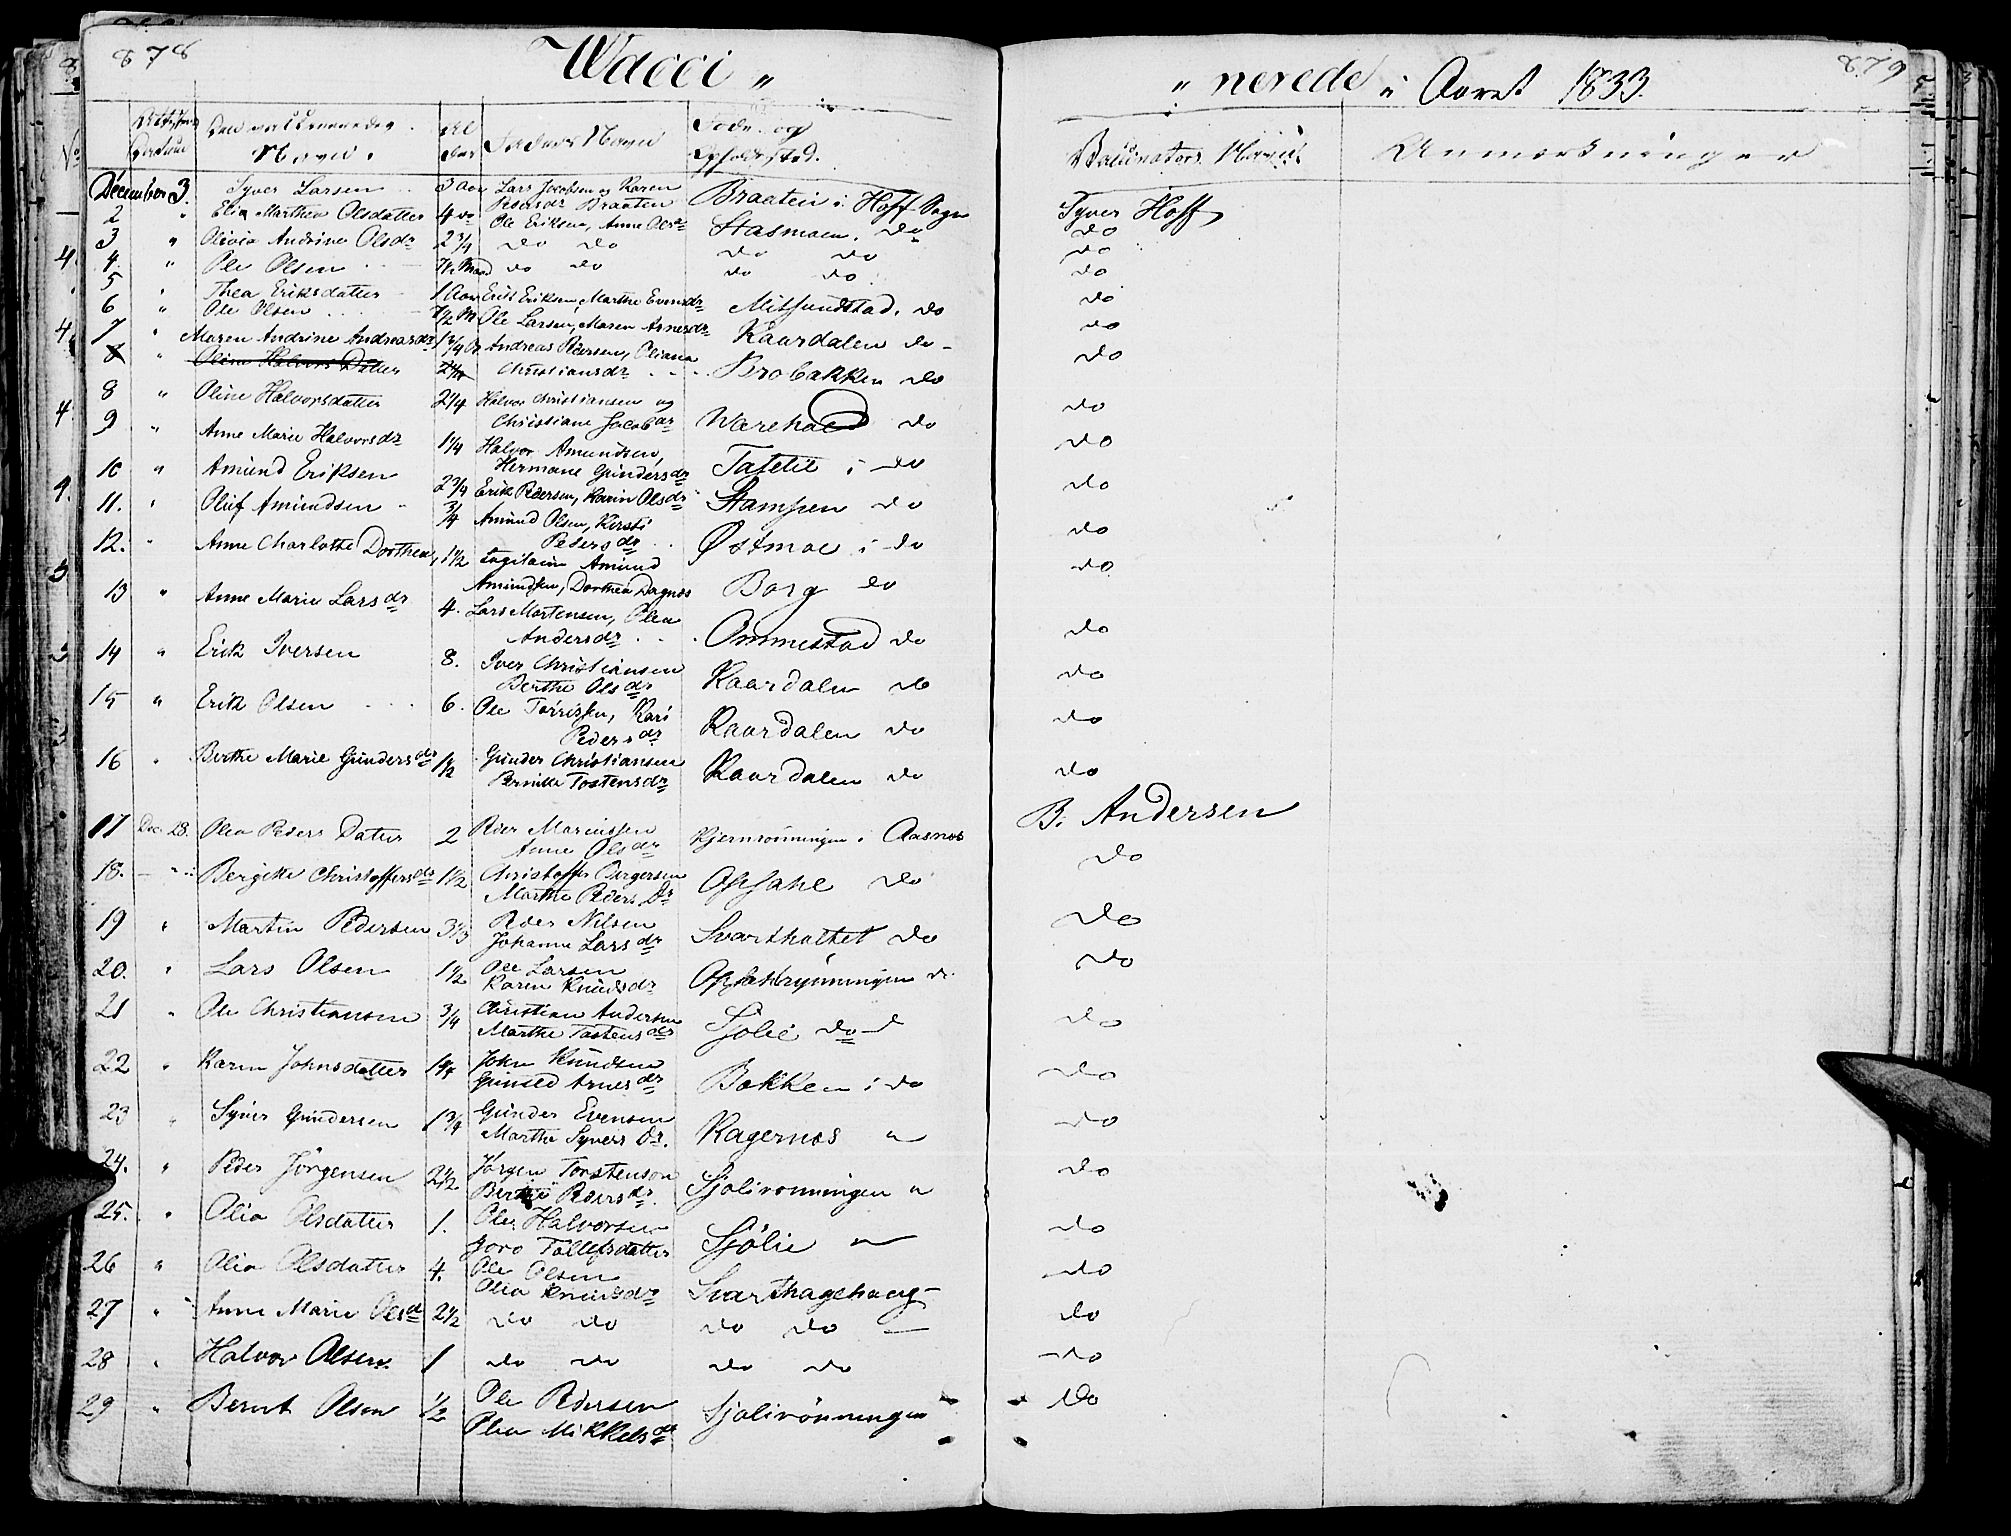 878
Wacci „
„ nerede i Aaret 1833.
879
No
Attestens Datum
Den vaccineredes Navn.
Al der
Faders Navn
Føde- og Opholdssted.
Vaccinators Navn.
Anmærkninger
December 3. Syver Larsen 3 Aar Lars Jacobsen og Karen Pedersdr Braaten Braaten i Hoff Sogn Syver Hoff
2 " Elia Marthea Olsdatter 4 do Ole Eriksen, Anne Olsdr Stasmoen. do do
3 " Olivia Andrine Olsdr 2 3/4 do do do do do
4. " Ole Olsen do do do do do
5 " Thea Eriksdatter 1 Aar Erik Eriksen, Marthe Evensdr Mitsundstad. do do
6 " Ole Olsen Ole Larsen, Maren Arnesdr Kaardalen do do
7 " Maren Andrine Andreasdr Andreas Pedersen, Oliana Christiansdr Brobakken do do
8 " Oline Halvors Datter 2 1/4
8 " Oline Halvorsdatter 2 1/4 Halvor Christiansen og Christiane Jacobdr do do
9 " Anne Marie Halvorsdr 1 1/4 Halvor Amundsen, Hermane Gundersdr i do do
10 " Amund Eriksen 2 3/4 Erik Pedersen, Karin Olsdr Stampen do do
11. " Oluf Amundsen 3/4 Amund Olsen, Kersti Pedersdr Østmoe i do do
12. " Anne Charlotte Dorthea, 1 1/2 Capitain Amund Amundsen, Dorthea Dagnæs Borg do do
13 " Anne Marie Larsdr 4. Lars Mortensen, Olea Andersdr Ommestad do do
14 " Erik Iversen 8. Iver Christiansen Berthe Olsdr Kaardalen do do
15 " Erik Olsen 6. Ole Torrissen, Kari Pedersdr Kaardalen do do
16 " Berthe Marie Gundersdr 1 1/2 Gunder Christiansen Pernille Tostensdr Kaardalen do do
17 Dec. 28. Olea Peders Datter 2 Peder Mariussen Anne Olsdr Kjernrønningen i Aasnæs B. Andersen
18. " Bergitte Christoffersdr 1 1/2 Christoffer Birgersen Marthe Peders Dr Opsahl do do
19 " Martin Pedersen 3 1/3 Peder Nilsen Johanne Larsdr Svartholtet do do
20. " Lars Olsen 1 1/2 Ole Larsen Karen Knudsdr do do
21 " Ole Christiansen 3/4 Christian Andersen Marthe Tostensdr Sjolie do do
22 " Karen Johnsdatter John Knudsen Gunild Arnesdr Bakken i do do
23 " Syver Gundersen 1 3/4 Gunder Evensen Marthe Syvers Dr. Kagernæs " do
24. " Peder Jörgensen 2 1/2 Jörgen Torstenson Berthe Pedersdr. Sjolirønningen " do
25. " Olia Olsdatter 1. Ole Halvorsen Goro Tollefsdatter Sjölie " do
26 " Olia Olsdatter 4. Ole Olsen Olia Knudsdr Svarthagehaug do
27 " Anne Marie Olsdr 2 1/2 do do do do do
28 " Halvor Olsen 1 do do do do do
29 " Bernt Olsen 1/2 Ole Pedersen Olea Mikkelsdr Sjolirönningen do